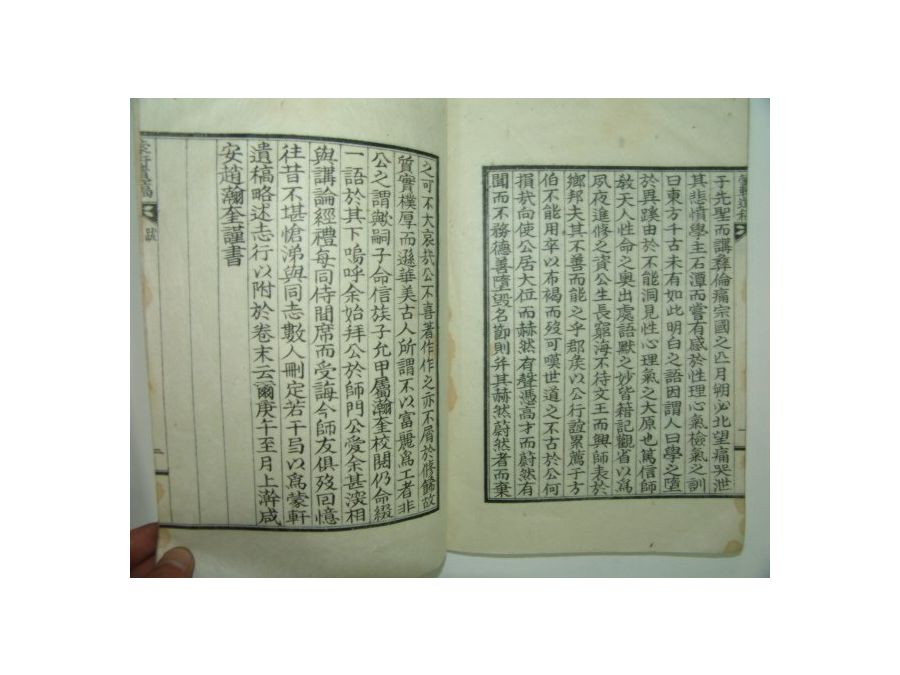 于先聖而講彝倫痛宗國之亡月朔必北望痛哭泄
其悲憤學主石潭而嘗有感於性理心氣檢氣之訓
曰東方千古未有如此明白之語因謂人曰學之墮
於異蹊由於不能洞見性心理氣之大原也篤信師
敎天人性命之奧出處語默之妙皆籍記觀省以爲
夙夜進修之資公生長窮海不待文王而興師表於
鄕邦夫其不善而能之乎郡矦以公行誼累薦于方
伯不能用卒以布褐而歿可嘆世道之不古於公何
損㦲向使公居大位而赫然有聲憑高才而蔚然有
聞而不務德善墮毀名節則幷其赫然蔚然者而棄
之可不大哀㦲公不喜著作作之亦不屑於修餙故
質實樸厚而遜華美古人所謂不以富麗爲工者非
公之謂歟嗣子命信族子允甲屬瀚奎校閱仍命綴
一語於其下嗚呼余始拜公於師門公愛余甚深相
與講論經禮每同侍函席而受誨今師友俱歿回憶
往昔不堪愴涕與同志數人刪定若干弓以爲蒙軒
遺稿略述志行以附於卷末云爾庚午至月上澣咸
安趙瀚奎謹書
蒙軒遺稿
跋